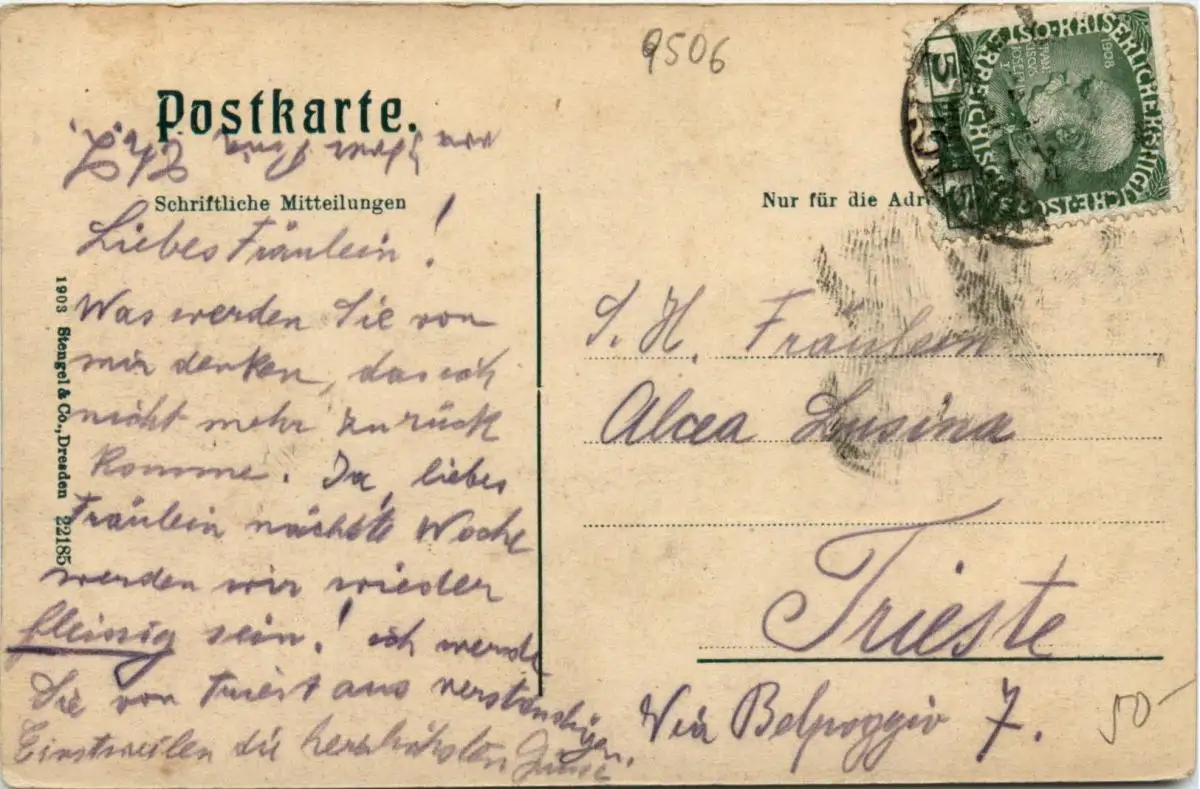 9506
Postkarte.
von Ihrer
Schriftliche Mitteilungen
Liebes Fräulein!
Was werden Sie von
mir denken, dass ich
nicht mehr zurück
komme. Ja, liebes
Fräulein nächste Woche
werden wir wieder
fleissig sein! ich werde
Sie von Triest aus verständigen.
Einstweilen die herzlichsten Grüsse
1903 Stengel & Co., Dresden 22185
Nur für die Adr
S. H. Fräulein
Alcea Lusina
Trieste
Via Belpoggio 7.
50-
KAISERLICHE KÖNIGLICHE ÖSTERREICHISCHE
FRANCISCUS JOSEPH I
1908
5